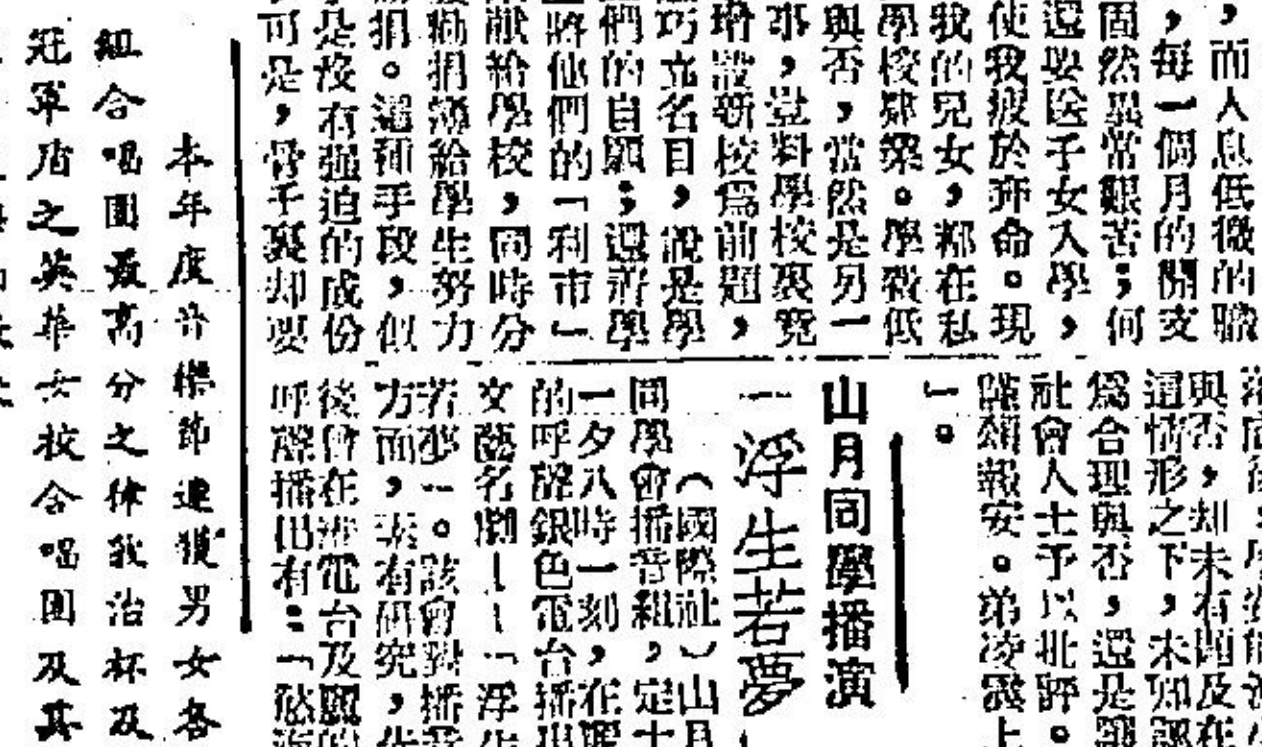 ，而人息低微的職
，每一個月的開支
固然異常艱苦；何
還要送子女入學，
使我疲於奔命。現
我的兒女，都在私
學校肄業。學費低
與否，當然是另一
事，豈料學校裏竟
增設新校爲前題，
巧立名目，說是學
們的自願；還 學
將他們的「利市」
献給學校，同時分
勸捐簿給學生努力
捐。這種手段，似
是沒有强迫的成份
可是，骨子裏却要
與否，却未有題及在
情形之下，未知認
爲合理與否，還是
社會人士予以批評。
頌報安。弟凌 上
」。
山月同學播演
「浮生若夢
（國際社）山月
同學會播音組，定十
一夕八時一刻，在麗
的呼聲銀色電台播出
文藝名劇——「浮生
若夢」。該會對播音
方面，素有研究，先
後曾在港電台及麗的
呼聲播出有：「慾海
本年度音樂節連獲男女各
組合唱團最高分之律敦治杯及
冠軍盾之英華女校合唱團及其